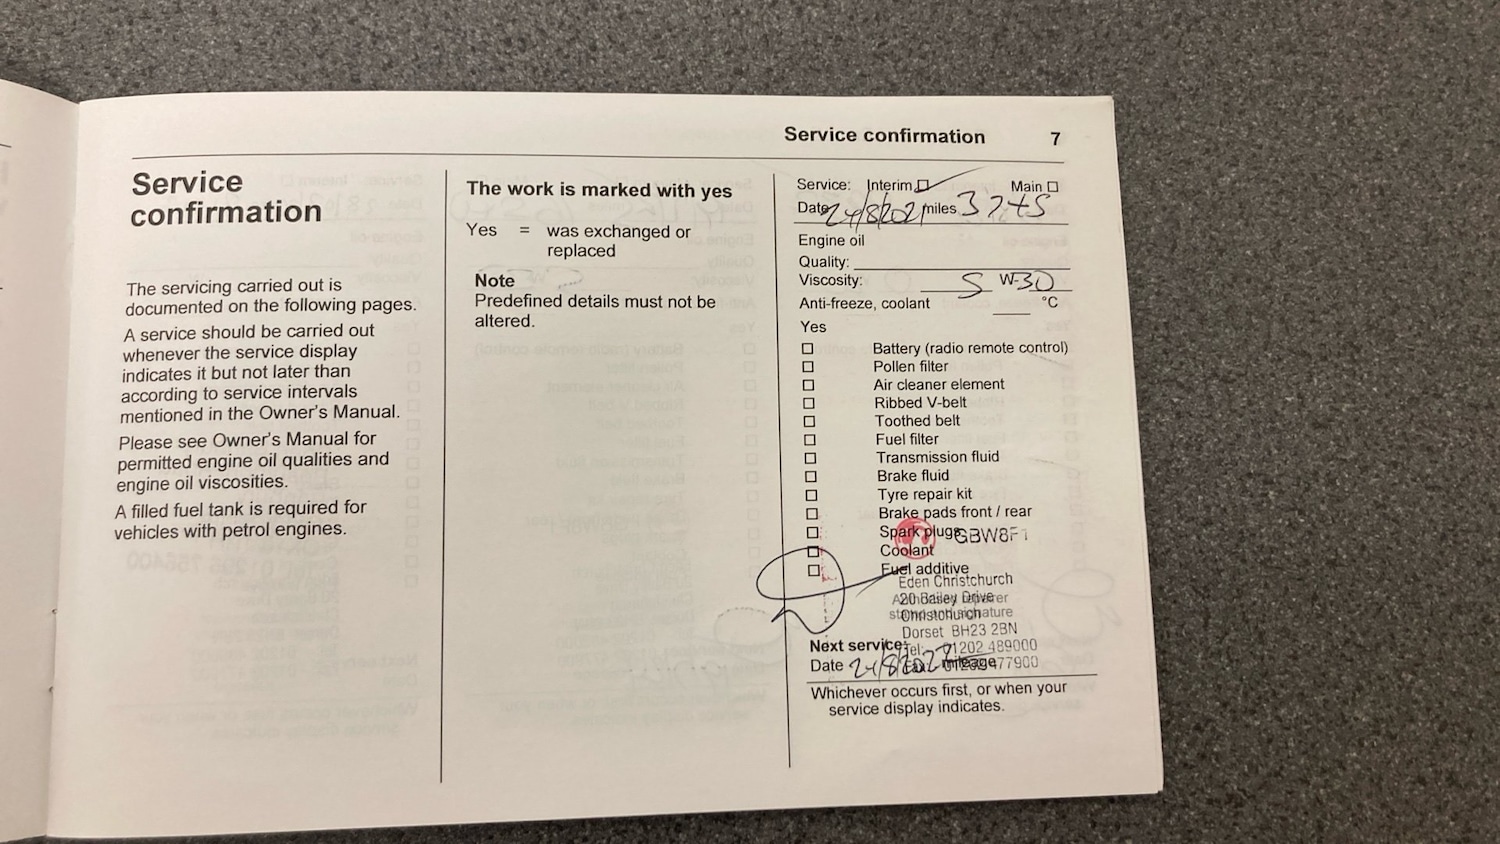 Service confirmation 7
Service
confirmation
The servicing carried out is
documented on the following pages.
A service should be carried out
whenever the service display
indicates it but not later than
according to service intervals
mentioned in the Owner's Manual.
Please see Owner's Manual for
permitted engine oil qualities and
engine oil viscosities.
A filled fuel tank is required for
vehicles with petrol engines.
The work is marked with yes
Yes = was exchanged or
replaced
Note
Predefined details must not be
altered.
Service: Interim Main
Date 24/8/2021 miles 3745
Engine oil
Quality:
Viscosity: 5 W-30
Anti-freeze, coolant °C
Yes
Battery (radio remote control)
Pollen filter
Air cleaner element
Ribbed V-belt
Toothed belt
Fuel filter
Transmission fluid
Brake fluid
Tyre repair kit
Brake pads front / rear
Spark plugs GBW8F1
Coolant
Fuel additive
Eden Christchurch
20 Bailey Drive
Christchurch
stamp and signature
Dorset BH23 2BN
Next service: Tel: 01202 489000
Date 24/8/2022 mileage 477900
Whichever occurs first, or when your
service display indicates.